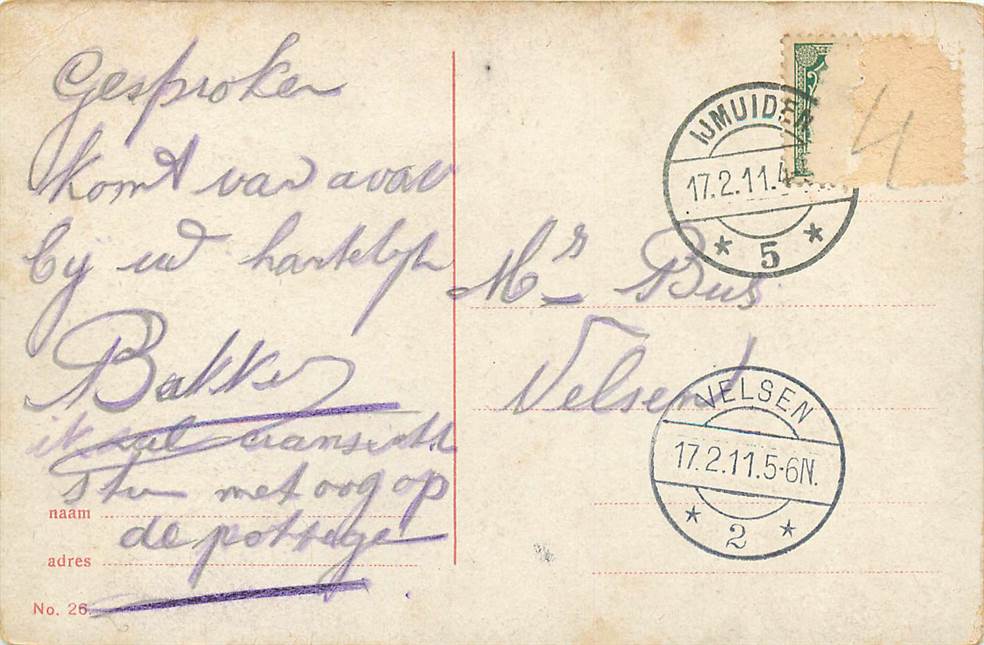 Gesproken
komt van avav
by uw hartelyk
Bakker
ik zal
met oog op
de
naam
adres
No. 26.
IJMUIDEN
17.2.11.4
* 5 *
Mrs Bus
Velsen
VELSEN
17.2.11.5-6N.
* 2 *
4